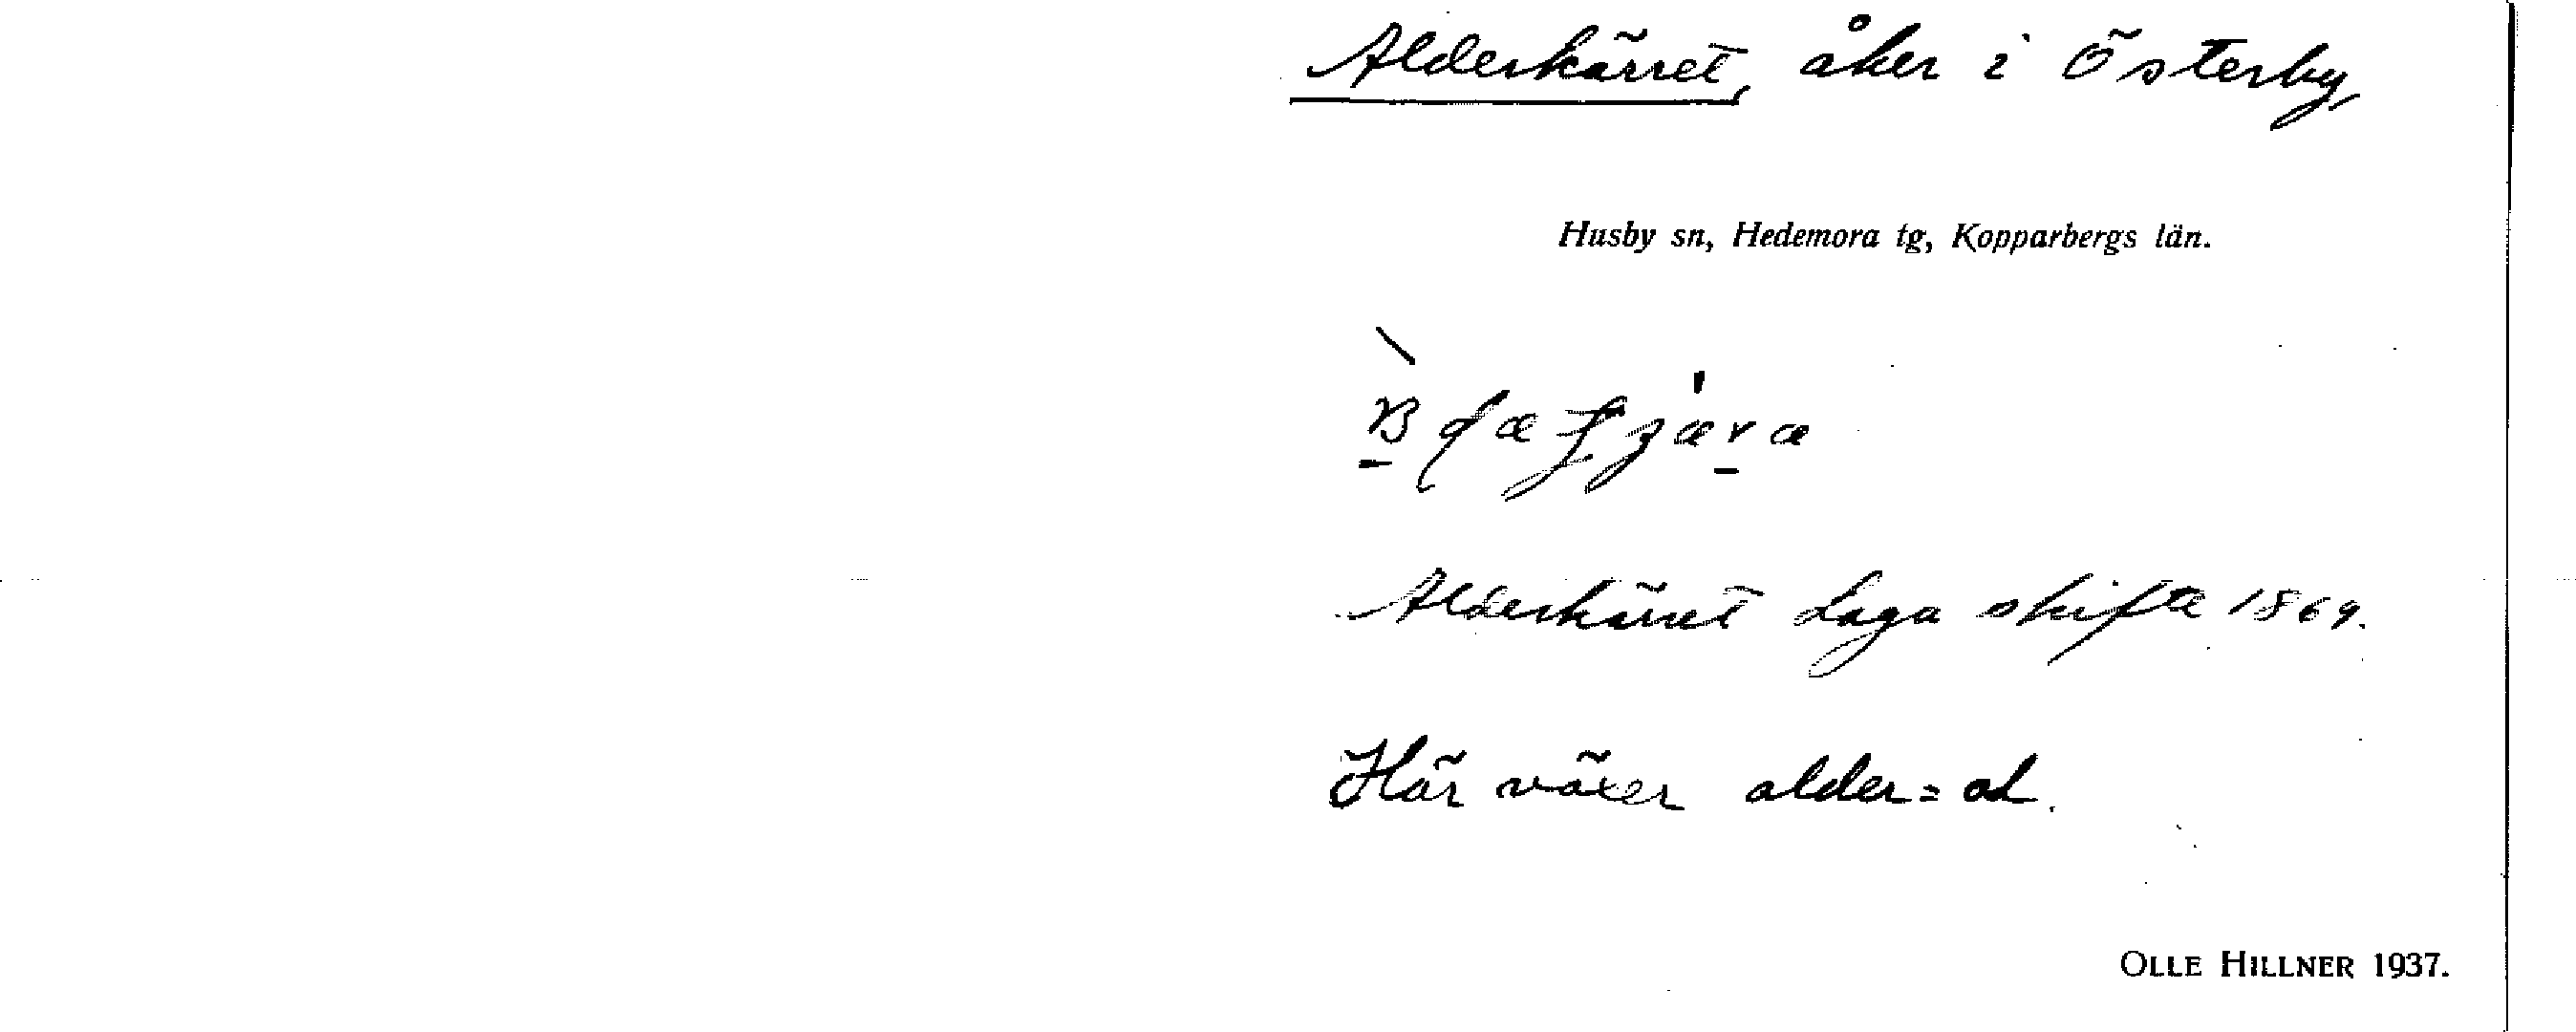 Alderkärret, åker i Österby
Husby sn, Hedemora tg, Kopparbergs län.
Alderkärret Laga skifte 1869.
Här växer alder = al.
OLLE HILLNER 1937.